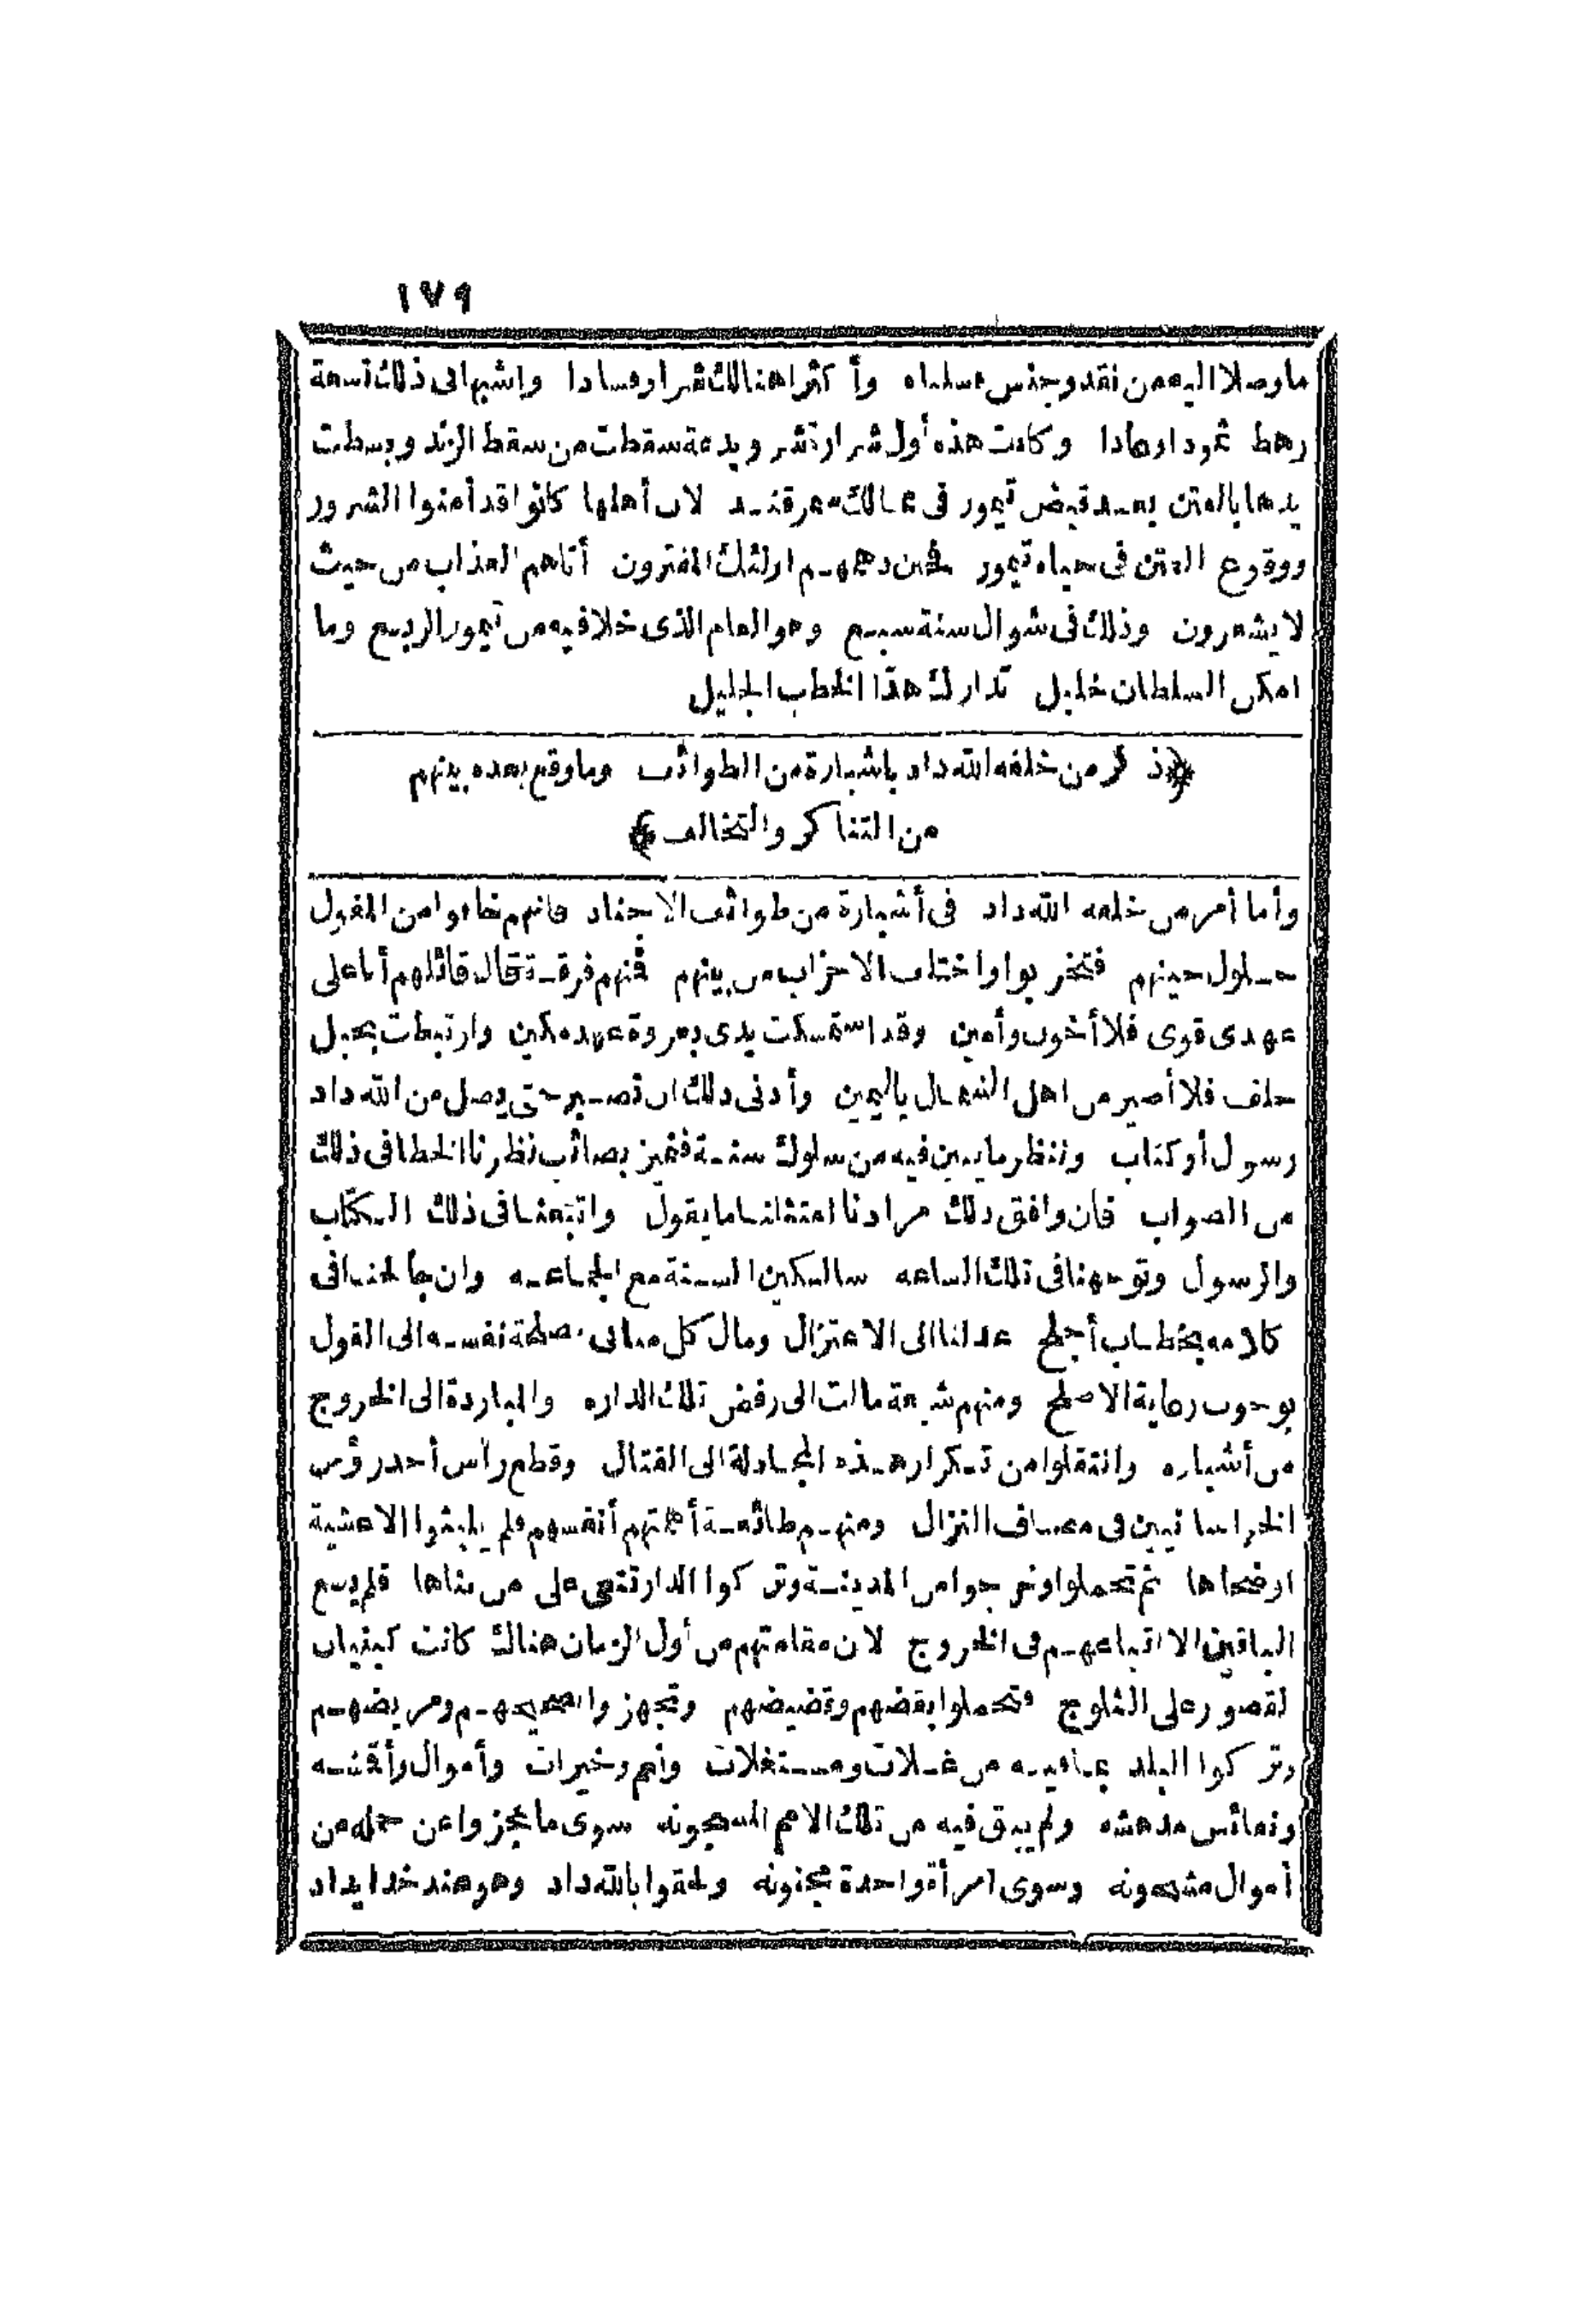 ١٧٩
ما وصلا اليه من نقد وجنس سلباه وأكثرا هنالك شرا وفسادا واشبها في ذلك تسعة
رهط ثمود او عادا وكانت هذه أول شرارة شر وبدعة سقطت من سقط الزند وبسطت
يدها بالفتن بعد قبض تيمور فى ممالك سمرقند لان أهلها كانوا قد أمنوا الشرور
ووقوع الفتن فى حياة تيمور فحين دهمهم اولئك المفترون أتاهم العذاب من حيث
لا يشعرون وذلك فى شوال سنة سبع وهو العام الذى خلا فيه من تيمور الربع وما
امكن السلطان خليل تدارك هذا الخطب الجليل
﴿ذكر من خلفه الله داد باشبارة من الطوائف وما وقع بعده بينهم
من التناكر والتخالف﴾
وأما أمر من خلفه الله داد فى أشبارة من طوائف الاجناد فانهم خافوا من المغول
حلول حينهم فتحزبوا واختلف الاحزاب من بينهم فمنهم فرقة قال قائلهم أنا على
عهدى قوى فلا أخون وأمين وقد استمسكت يدى بعروة عهد مكين وارتبطت بحبل
حلف فلا أصير من اهل الشمال باليمين وأدنى ذلك ان تصبر حتى يصل من الله داد
رسول أو كتاب وننظر ما يبين فيه من سلوك سنة فنميز بصائب نظرنا الخطا فى ذلك
من الصواب فان وافق ذلك مرادنا امتثلنا ما يقول واتبعنا فى ذلك الكتاب
والرسول وتوجهنا فى تلك الساعه سالكين السنة مع الجماعه وان جا لحننا فى
كلامه بخطاب أجلح عدلنا الى الاعتزال ومال كل منا فى مصلحة نفسه الى القول
بوجوب رعاية الاصلح ومنهم شيعة مالت الى رفض تلك الداره والمبادرة الى الخروج
من أشباره وانتقلوا من تكرار هذه المجادلة الى القتال وقطع رأس أحد رؤس
الخراسانيين فى مصاف النزال ومنهم طائفة أهمتهم أنفسهم فلم يلبثوا الا عشية
او ضحاها ثم تحملوا وخرجوا من المدينة وتركوا الدار تنعى على من بناها فلم يسع
الباقين الا اتباعهم فى الخروج لان مقامتهم من أول الزمان هناك كانت كبنيان
لقصور على الثلوج فتحملوا بقضهم وقضيضهم وتجهزوا بصحيحهم ومريضهم
وتركوا البلد بما فيه من غلات ومستغلات ونعم وخيرات وأموال وأقمشه
ونفائس مدهشه ولم يبق فيه من تلك الامم المسجونه سوى ما عجزوا عن حمله من
أموال مشحونه وسوى امرأة واحدة مجنونه ولحقوا بالله داد وهو عند خدايداد